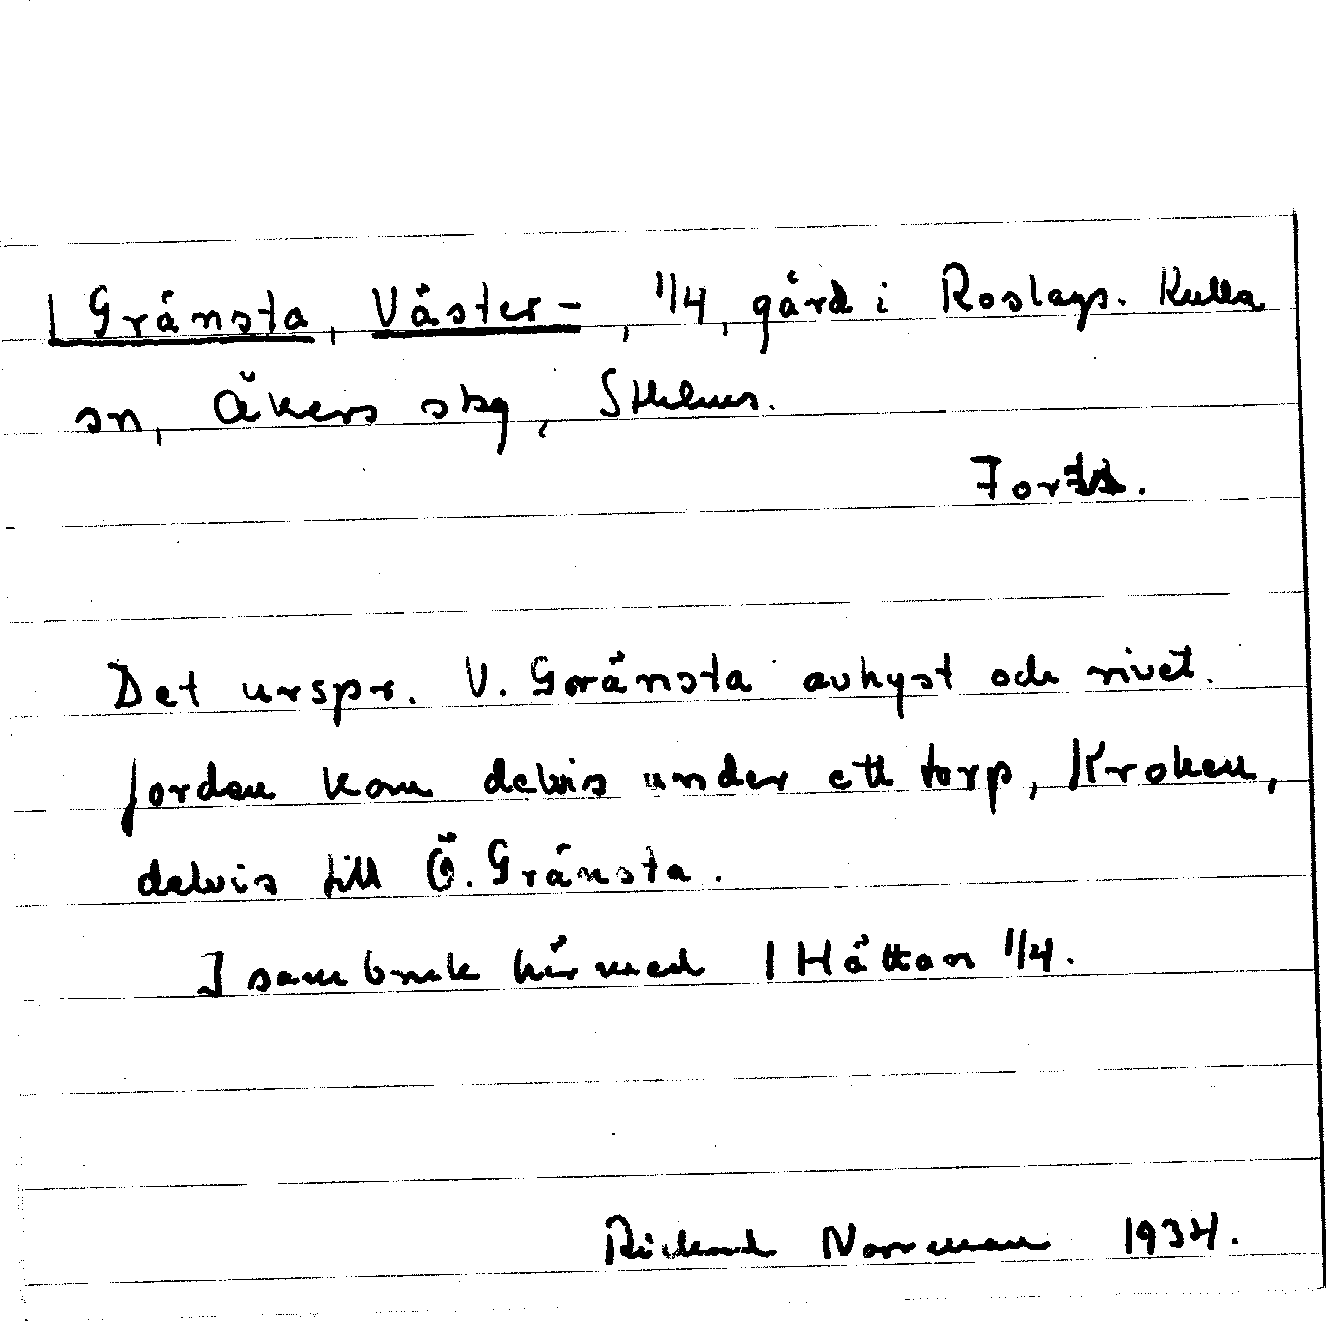 | Gränsta, Väster-, 1/4, gård i Roslags-Kulla
sn, Åkers skg, Sthlms.
Forts.
Det urspr. V. Gränsta avhyst och rivet.
Jorden kom delvis under ett torp, | Kroken,
delvis till Ö. Gränsta.
I sambruk härmed | Hättan 1/4.
Rickard Norrman 1934.